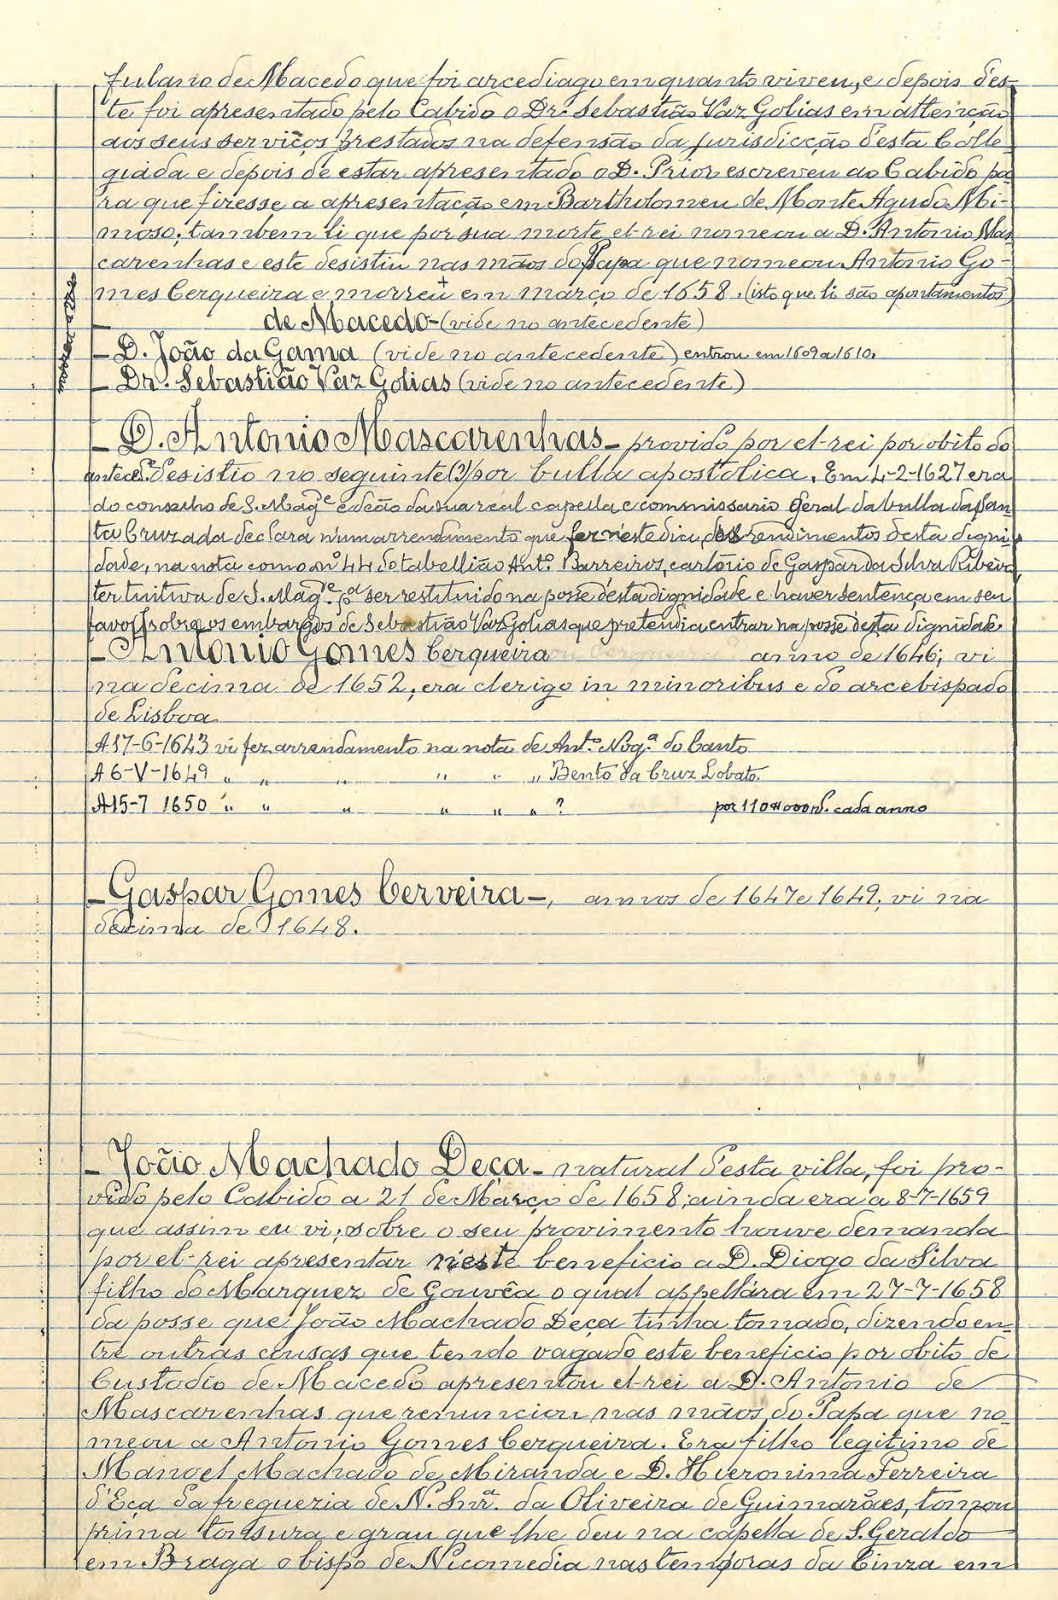 fulano de Macedo que foi arcediago emquanto viveu, e depois des-
te foi apresentado pelo Cabido o Dr. Sebastião Vaz Golias em attenção
aos seus serviços prestados na defensão da jurisdicção d'esta Colle
giada e depois de estar apresentado o D. Prior escreveu ao Cabido pa
ra que fizesse a apresentação em Bartholomeu de Monte Agudo Mi-
moso; tambem li que por sua morte el-rei nomeou a D. Antonio Mas
carenhas e este desistiu nas mãos do Papa que nomeou Antonio Go-
mes Cerqueira e morreu + em março de 1658. (isto que li são apontamentos)
de Macedo - (vide no antecedente)
- D. João da Gama (vide no antecedente) entrou em 1609 a 1610.
- Dr. Sebastião Vaz Golias (vide no antecedente)
- D. Antonio Mascarenhas - provido por el-rei por obito do
anteced.te desistio no seguinte (?) por bulla apostolica. Em 4-2-1627 era
do conselho de S. Mag.e e deão da sua real capella e commissario geral da bulla da San
ta Cruzada declara n'um arrendamento que fez n'este dia, dos rendimentos desta digni
dade, na nota como nº 44 do tabellião Ant.º Barreiros, cartorio de Gaspar da Silva Ribeiro,
ter tuitiva de S. Mag.e p.a ser restituido na posse d'esta dignidade e haver sentença em seu
favor sobre os embargos de Sebastião Vaz Golias que pretendia entrar na posse d'esta dignidade
- Antonio Gomes Cerqueira anno de 1646; vi
na decima de 1652, era clerigo in minoribus e do arcebispado
de Lisboa.
A 17-6-1643 vi fez arrendamento na nota de Ant.º Nog.ª do Canto
A 6-V-1649 " " " " " " Bento da Cruz Lobato.
A 15-7 1650 " " " " " " ? por 110#000 rs. cada anno
- Gaspar Gomes Cerveira -, annos de 1647 e 1649; vi na
decima de 1648.
- João Machado Deça - natural d'esta villa, foi pro-
vido pelo Cabido a 21 de Março de 1658; ainda era a 8-7-1659
que assim eu vi; sobre o seu provimento houve demanda
por el-rei apresentar n'este beneficio a D. Diogo da Silva
filho do Marquez de Gouvêa o qual appellára em 27-7-1658
da posse que João Machado Deça tinha tomado, dizendo en-
tre outras cousas que tendo vagado este beneficio por obito de
Custodio de Macedo apresentou el-rei a D. Antonio de
Mascarenhas que renunciou nas mãos do Papa que no
meou a Antonio Gomes Cerqueira. Era filho legitimo de
Manoel Machado de Miranda e D. Hieronima Ferreira
d'Eça da freguezia de N. Snr.ª da Oliveira de Guimarães, tomou
prima tonsura e grau que lhe deu na capella de S. Geraldo
em Braga o bispo de Nicomedia nas temporas da Cinza em